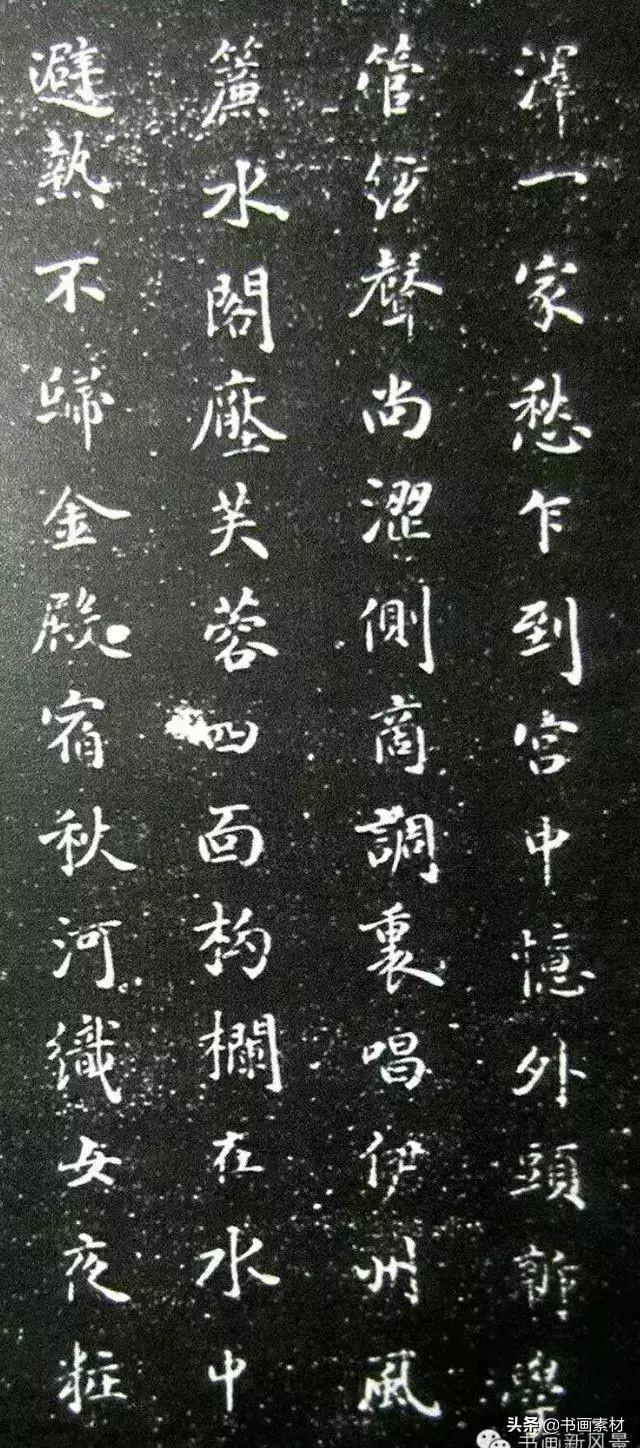 澤一家愁乍到宮中憶外頭新學
管絃聲尚澀側商調裏唱伊州風
簾水閣壓芙蓉四面枸欄在水中
避熱不歸金殿宿秋河織女夜粧
头条@书画素材
书画新风景